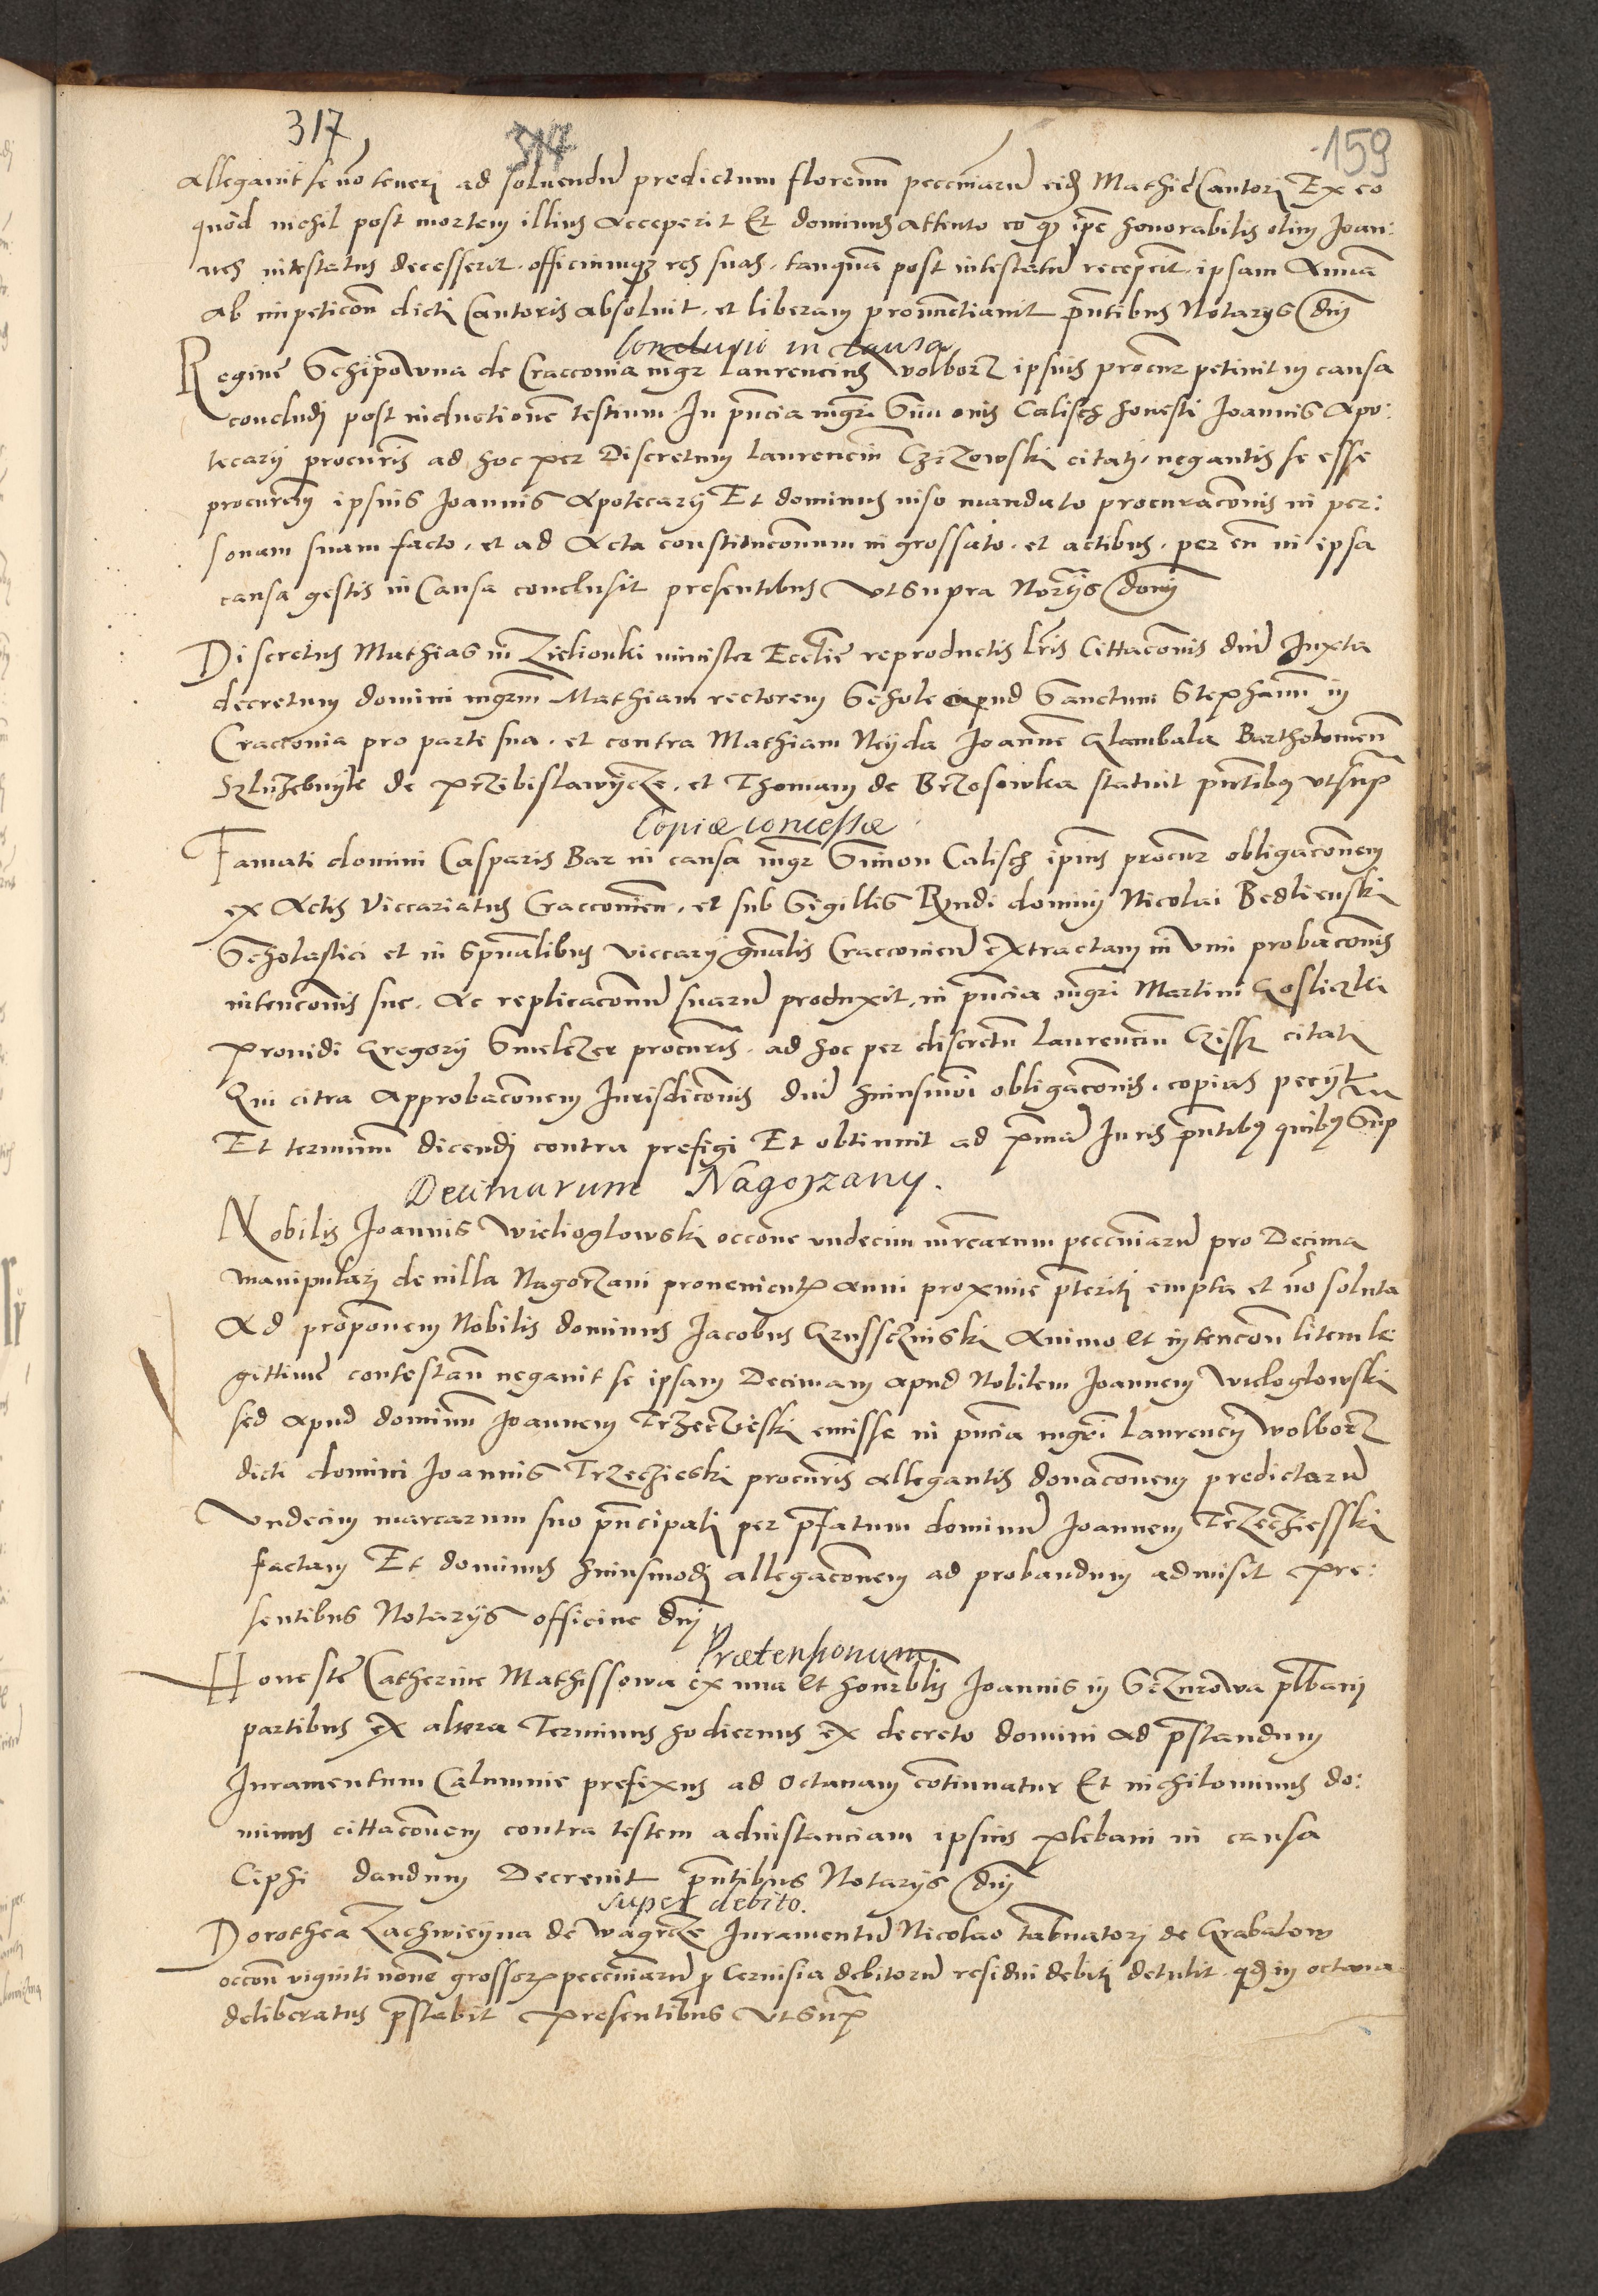 317 317 159
Allegavit se nō teneri ad solvendū predictum florenū peccuniarū eidē Mathie Cantori Ex eo
quod nichil post mortem illius acceperit Et dominus attento eo ꝙ ipse honorabilis olim Joan:
nes intestatus decesserit. officiumqꝫ res suas. tanquā post intestatū receperit. ipsam Annā
Ab impeticōn dicti Cantoris absolvit. et liberam pronunctiavit pñtibus Notarys dnj
Conclusio in causa
Regine Schipowna de Cracconia mgr Laurencius Wolborz ipsius procur petivit in causa
concludi post inductionē testium In pñcia mgri Simonis Calisch honesti Joannis Apo:
tecary procuris ad hoc per Discretum Laurenciū Czizowski citati. negantis se esse
procurem ipsius Joannis Apotecary Et dominus viso mandato procuracōnis in per:
sonam suam facto. et ad Acta constitucionum in grossato. et actibus. per eū in ipsa
causa gestis in Causa conclusit presentibus Utsupra Norijs domj
Discretus Mathias in Zielionki minister Ecclie reproductis lris Cittacōnis dnū Juxta
decretum domini mgrm Mathiam rectorem Schole apud Sanctum Stephanū in
Cracconia pro parte sua. et contra Mathiam Neyda Joanne Glambala Bartholomeū
Szluzebnyk de Przibislawycze. et Thomam de Brzosowka statuit pñtibus utsup
Copiæ concessæ
Famati domini Casparis Bar in causa mgr Simon Calisch ipius procur obligacōnem
ex Actis Viccariatus Cracconien. et sub Sigillis Rndi domini Nicolai Bedlienski
Scholastici et in spũalibus viccary gñalis Cracconien extractam in vim probacōnis
intencōnis sue. Ac replicacōnū suarū produxit. in pñcia mgri Martini Goslizki
Providi Gregory Smelczer procuris. ad hoc per discretū Laurenciū Czissk citati
Qui citra Approbacōnem Jurisdicōnis dnū huiusmōi obligacōnis. copias peryt
Et terminū dicendi contra prefigi Et obtinuit ad pmā Juris pñtibus quibus Sup
Decimarum Nagorzany.
Nobilis Joannis Wielioglowski occōne undecim mrcarum peccuniarū pro Decima
manipulari de villa Nagorzani provenienti anni proxime pteriti empta et nō soluta
Ad proponem Nobilis dominus Jacobus Grussczinski Animo et intencōn litem le
gittime contestan negavit se ipsam Decimam apud Nobilem Joannem Wieloglowski
sed apud dominū Joannem Trzeczieski emisse in pñcia mgri Laurency Wolborz
dicti domini Joannis Trzeczieski procuris allegantis donacōnem predictarū
Undecim marcarum suo pñcipali per pfatum dominū Joannem Trzeczziesski
factam Et dominus huiusmodi allegacōnem ad probandum admisit Pre:
sentibus Notarys officine dnj
Prætensionum
Honeste Catherine Mathissowa ex una et honrblis Joannis in Sczurowa plbani
partibus ex altera Terminus hodiernus ex decreto domini ad pstandum
Juramentum Calumnie prefixus ad Octavam cōtinuatur Et nichilominus do:
minus cittacōnem contra testem adinstanciam ipsius Plebani in causa
Ciphi dandum Decrevit pñtibus Notarys dnj
super debito.
Dorothea Zachwieyna de Wagrcze Juramentū Nicolao tabnatori de Grabalow
occon viginti nove grossoꝝ peccuniarū p Cervisia debitorū residui debiti detulit. qd in octava
deliberatus pstabit Presentibus Utsup